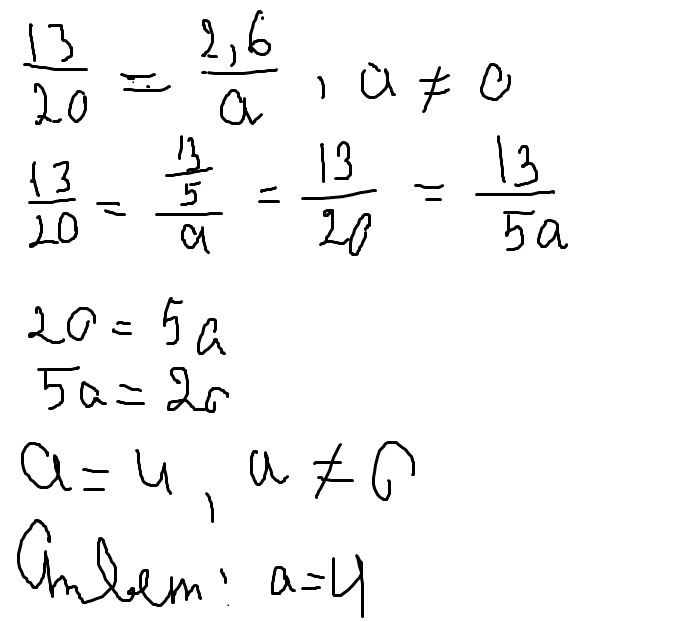 13/20 = 2,6/a , a ≠ 0
13/20 = (13/5)/a = 13/20 = 13/5a
20 = 5a
5a = 20
a = 4, a ≠ 0
Ответ: a = 4